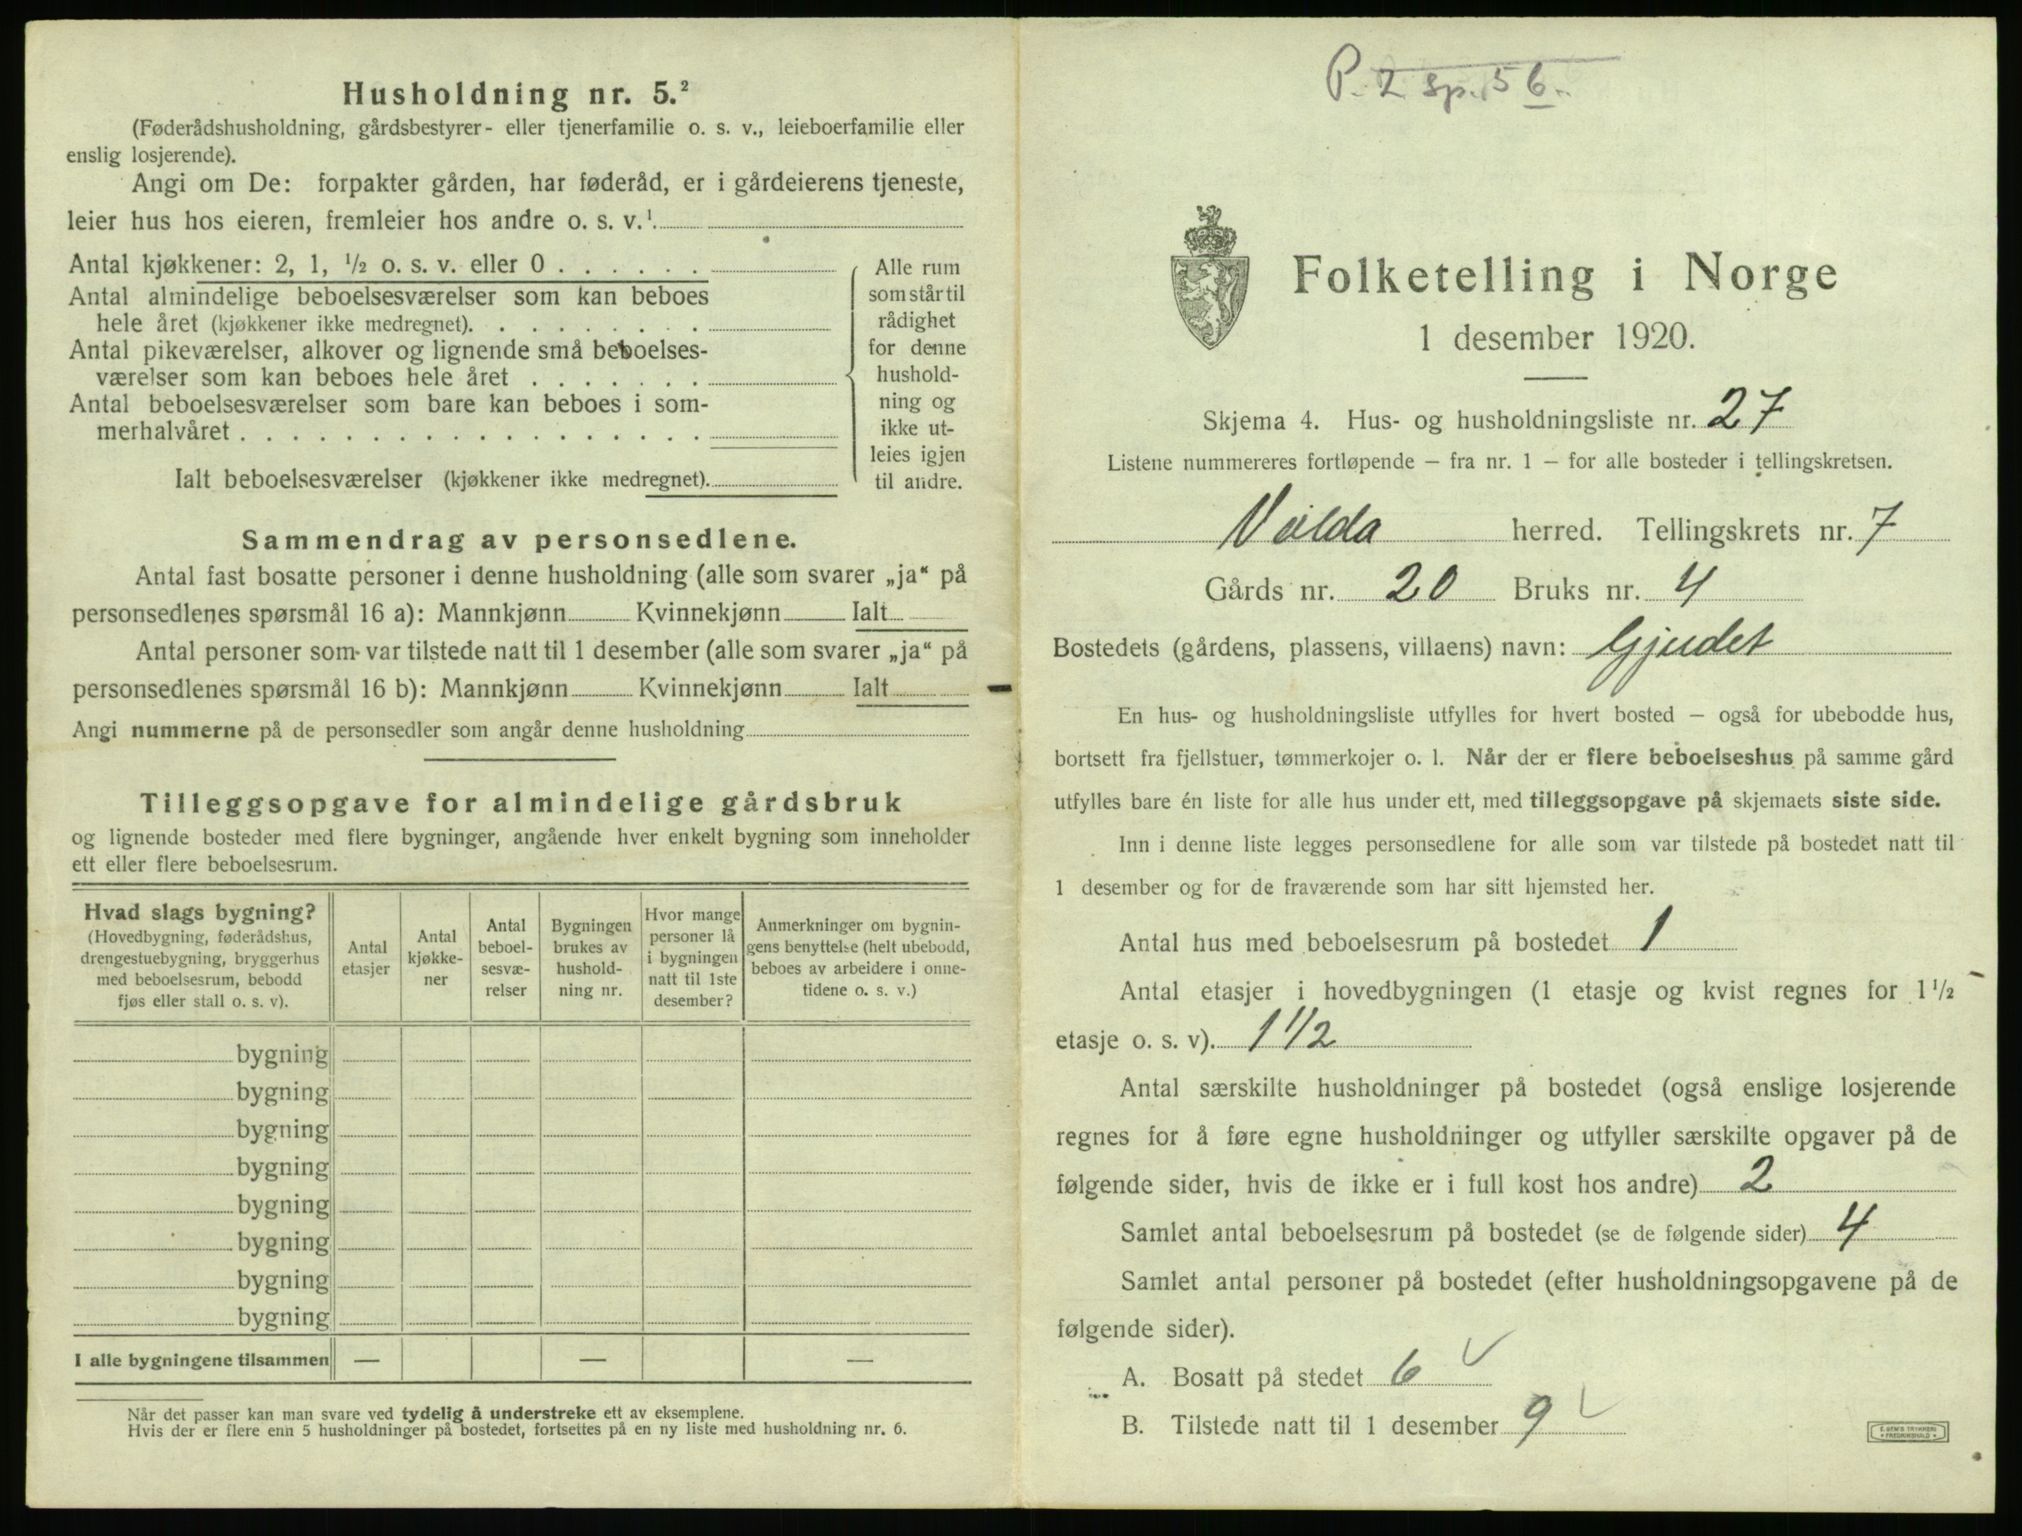 Husholdning nr. 5.²
(Føderådshusholdning, gårdsbestyrer- eller tjenerfamilie o. s. v., leieboerfamilie eller
enslig losjerende).
Angi om De: forpakter gården, har føderåd, er i gårdeierens tjeneste,
leier hus hos eieren, fremleier hos andre o. s. v.¹
Antal kjøkkener: 2, 1, ½ o. s. v. eller 0 . . . . . .
Antal almindelige beboelsesværelser som kan beboes
hele året (kjøkkener ikke medregnet). . . . . . . . .
Antal pikeværelser, alkover og lignende små beboelses-
værelser som kan beboes hele året . . . . . . .
Antal beboelsesværelser som bare kan beboes i som-
merhalvåret . . . . . . . . . . . . . . . . . .
Ialt beboelsesværelser (kjøkkener ikke medregnet).
Alle rum
som står til
rådighet
for denne
hushold-
ning og
ikke ut-
leies igjen
til andre.
Sammendrag av personsedlene.
Antal fast bosatte personer i denne husholdning (alle som svarer „ja“ på
personsedlenes spørsmål 16 a): Mannkjønn Kvinnekjønn Ialt
Antal personer som var tilstede natt til 1 desember (alle som svarer „ja“ på
personsedlenes spørsmål 16 b): Mannkjønn Kvinnekjønn Ialt
Angi nummerne på de personsedler som angår denne husholdning
Tilleggsopgave for almindelige gårdsbruk
og lignende bosteder med flere bygninger, angående hver enkelt bygning som inneholder
ett eller flere beboelsesrum.
Hvad slags bygning?
(Hovedbygning, føderådshus,
drengestuebygning, bryggerhus
med beboelsesrum, bebodd
fjøs eller stall o. s. v).
Antal
etasjer
Antal
kjøkke-
ner
Antal
beboel-
sesvæ-
relser
Bygningen
brukes av
hushold-
ning nr.
Hvor mange
personer lå
i bygningen
natt til 1ste
desember?
Anmerkninger om bygnin-
gens benyttelse (helt ubebodd,
beboes av arbeidere i onne-
tidene o. s. v.)
bygning
bygning
bygning
bygning
bygning
bygning
bygning
bygning
I alle bygningene tilsammen — — —
Når det passer kan man svare ved tydelig å understreke ett av eksemplene.
Hvis der er flere enn 5 husholdninger på bostedet, fortsettes på en ny liste med husholdning nr. 6.
P. 2 sp. 5 6.
Folketelling i Norge
1 desember 1920.
Skjema 4. Hus- og husholdningsliste nr. 27
Listene nummereres fortløpende — fra nr. 1 — for alle bosteder i tellingskretsen.
Volda herred. Tellingskrets nr. 7
Gårds nr. 20 Bruks nr. 4
Bostedets (gårdens, plassens, villaens) navn: Gjudet
En hus- og husholdningsliste utfylles for hvert bosted — også for ubebodde hus,
bortsett fra fjellstuer, tømmerkojer o. l. Når der er flere beboelseshus på samme gård
utfylles bare én liste for alle hus under ett, med tilleggsopgave på skjemaets siste side.
Inn i denne liste legges personsedlene for alle som var tilstede på bostedet natt til
1 desember og for de fraværende som har sitt hjemsted her.
Antal hus med beboelsesrum på bostedet 1
Antal etasjer i hovedbygningen (1 etasje og kvist regnes for 1½
etasje o. s. v). 1 1/2
Antal særskilte husholdninger på bostedet (også enslige losjerende
regnes for å føre egne husholdninger og utfyller særskilte opgaver på de
følgende sider, hvis de ikke er i full kost hos andre) 2
Samlet antal beboelsesrum på bostedet (se de følgende sider) 4
Samlet antal personer på bostedet (efter husholdningsopgavene på de
følgende sider).
A. Bosatt på stedet 6 ✓
B. Tilstede natt til 1 desember 9 ✓